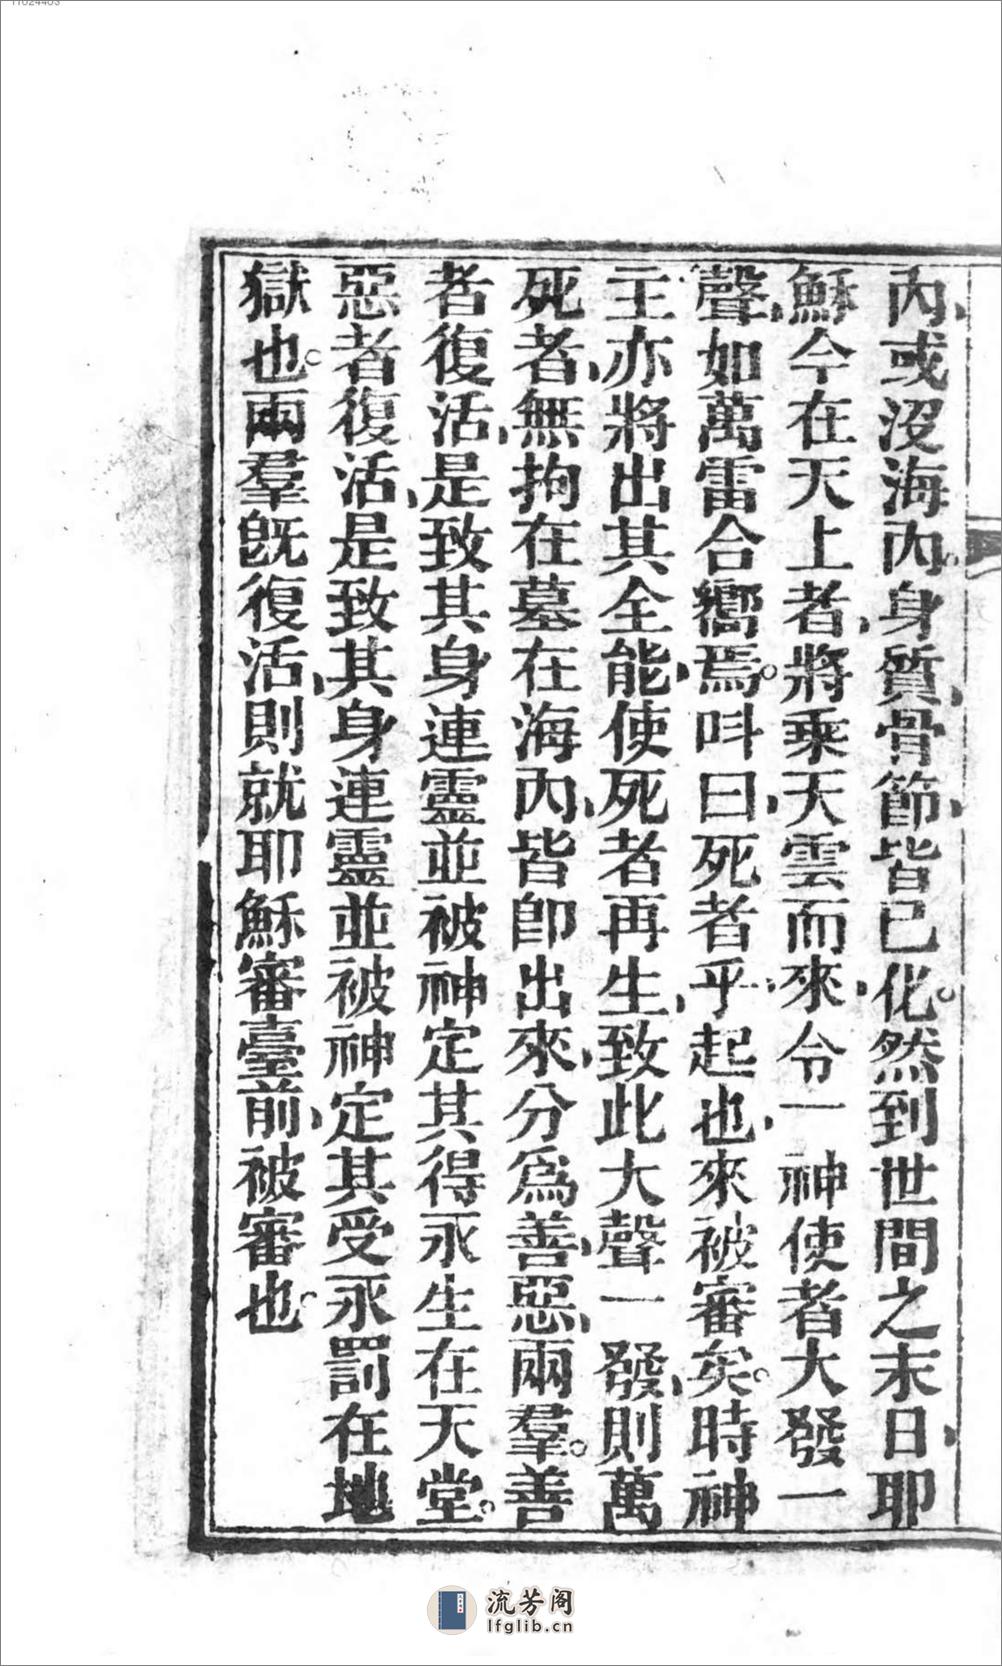 內、或沒海內。身質、骨節、皆已化。然到世間之末日、耶
穌今在天上者、將乘天雲而來、令一神使者大發一
聲、如萬雷合嚮焉。呌曰、死者乎、起也、來被審矣。時神
主亦將出其全能、使死者再生、致此大聲一發、則萬
死者、無拘在墓在海內、皆卽出來、分爲善、惡、兩羣。善
者復活、是致其身連靈並被神定其得永生在天堂。
惡者復活、是致其身連靈並被神定其受永罰在地
獄也。兩羣旣復活、則就耶穌審臺前、被審也。
流芳阁
lfglib.cn